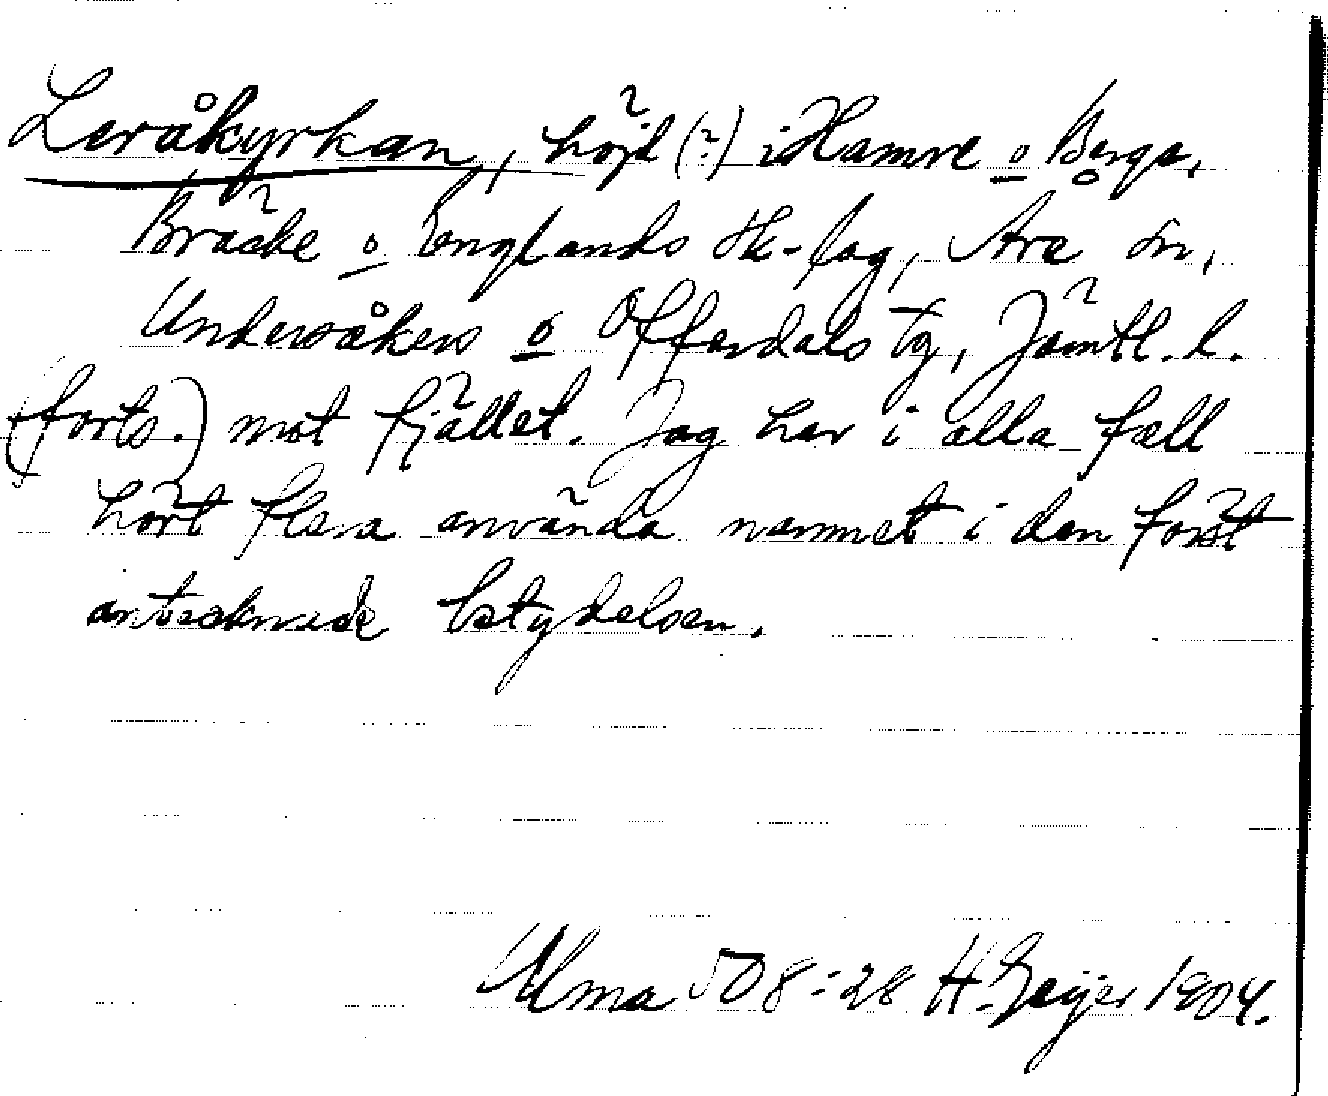 Leråkyrkan, höjd (?) i Hamre o Berge,
Bräcke o Englands sk-lag, Åre sn,
Undersåkers o Offerdals tg, Jämtl. l.
(forts.) mot fjället. Jag har i alla fall
hört flera använda namnet i den först
antecknade betydelsen.
Ulma 508:28 H. Geijer 1904.